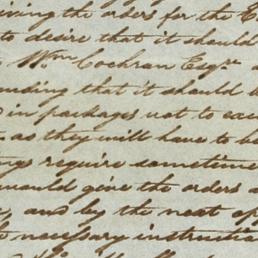 iving the orders for the E
to desire that it should
Wm Cochran Esqr. a
nding that it should b
in packages not to exc
as they will have to be
ngs require sometime
would give the orders a
and by the next op
necessary instructio